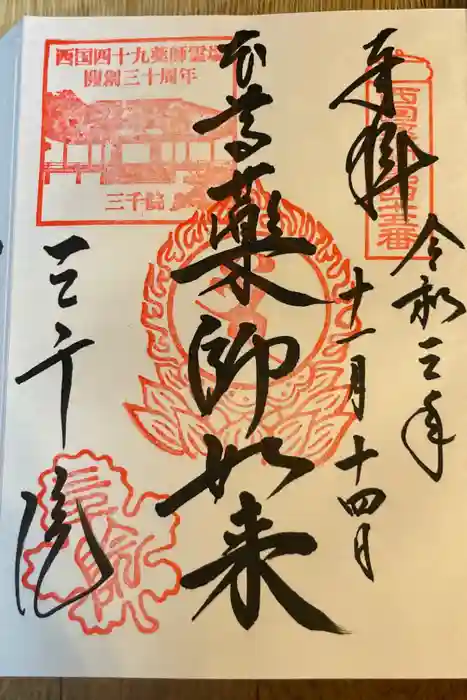 奉拝
令和三年
十一月十四日
本尊薬師如来
三千院
西国四十九薬師霊場
開創三十周年
三千院